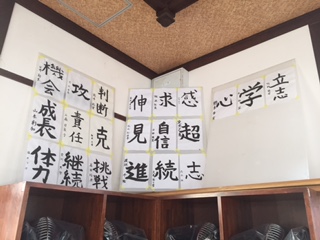 機会
攻
判断
成装
責任
克
体力
継続
挑戦
伸
求
感
見
自信
超
進
続
志
心
学
立志